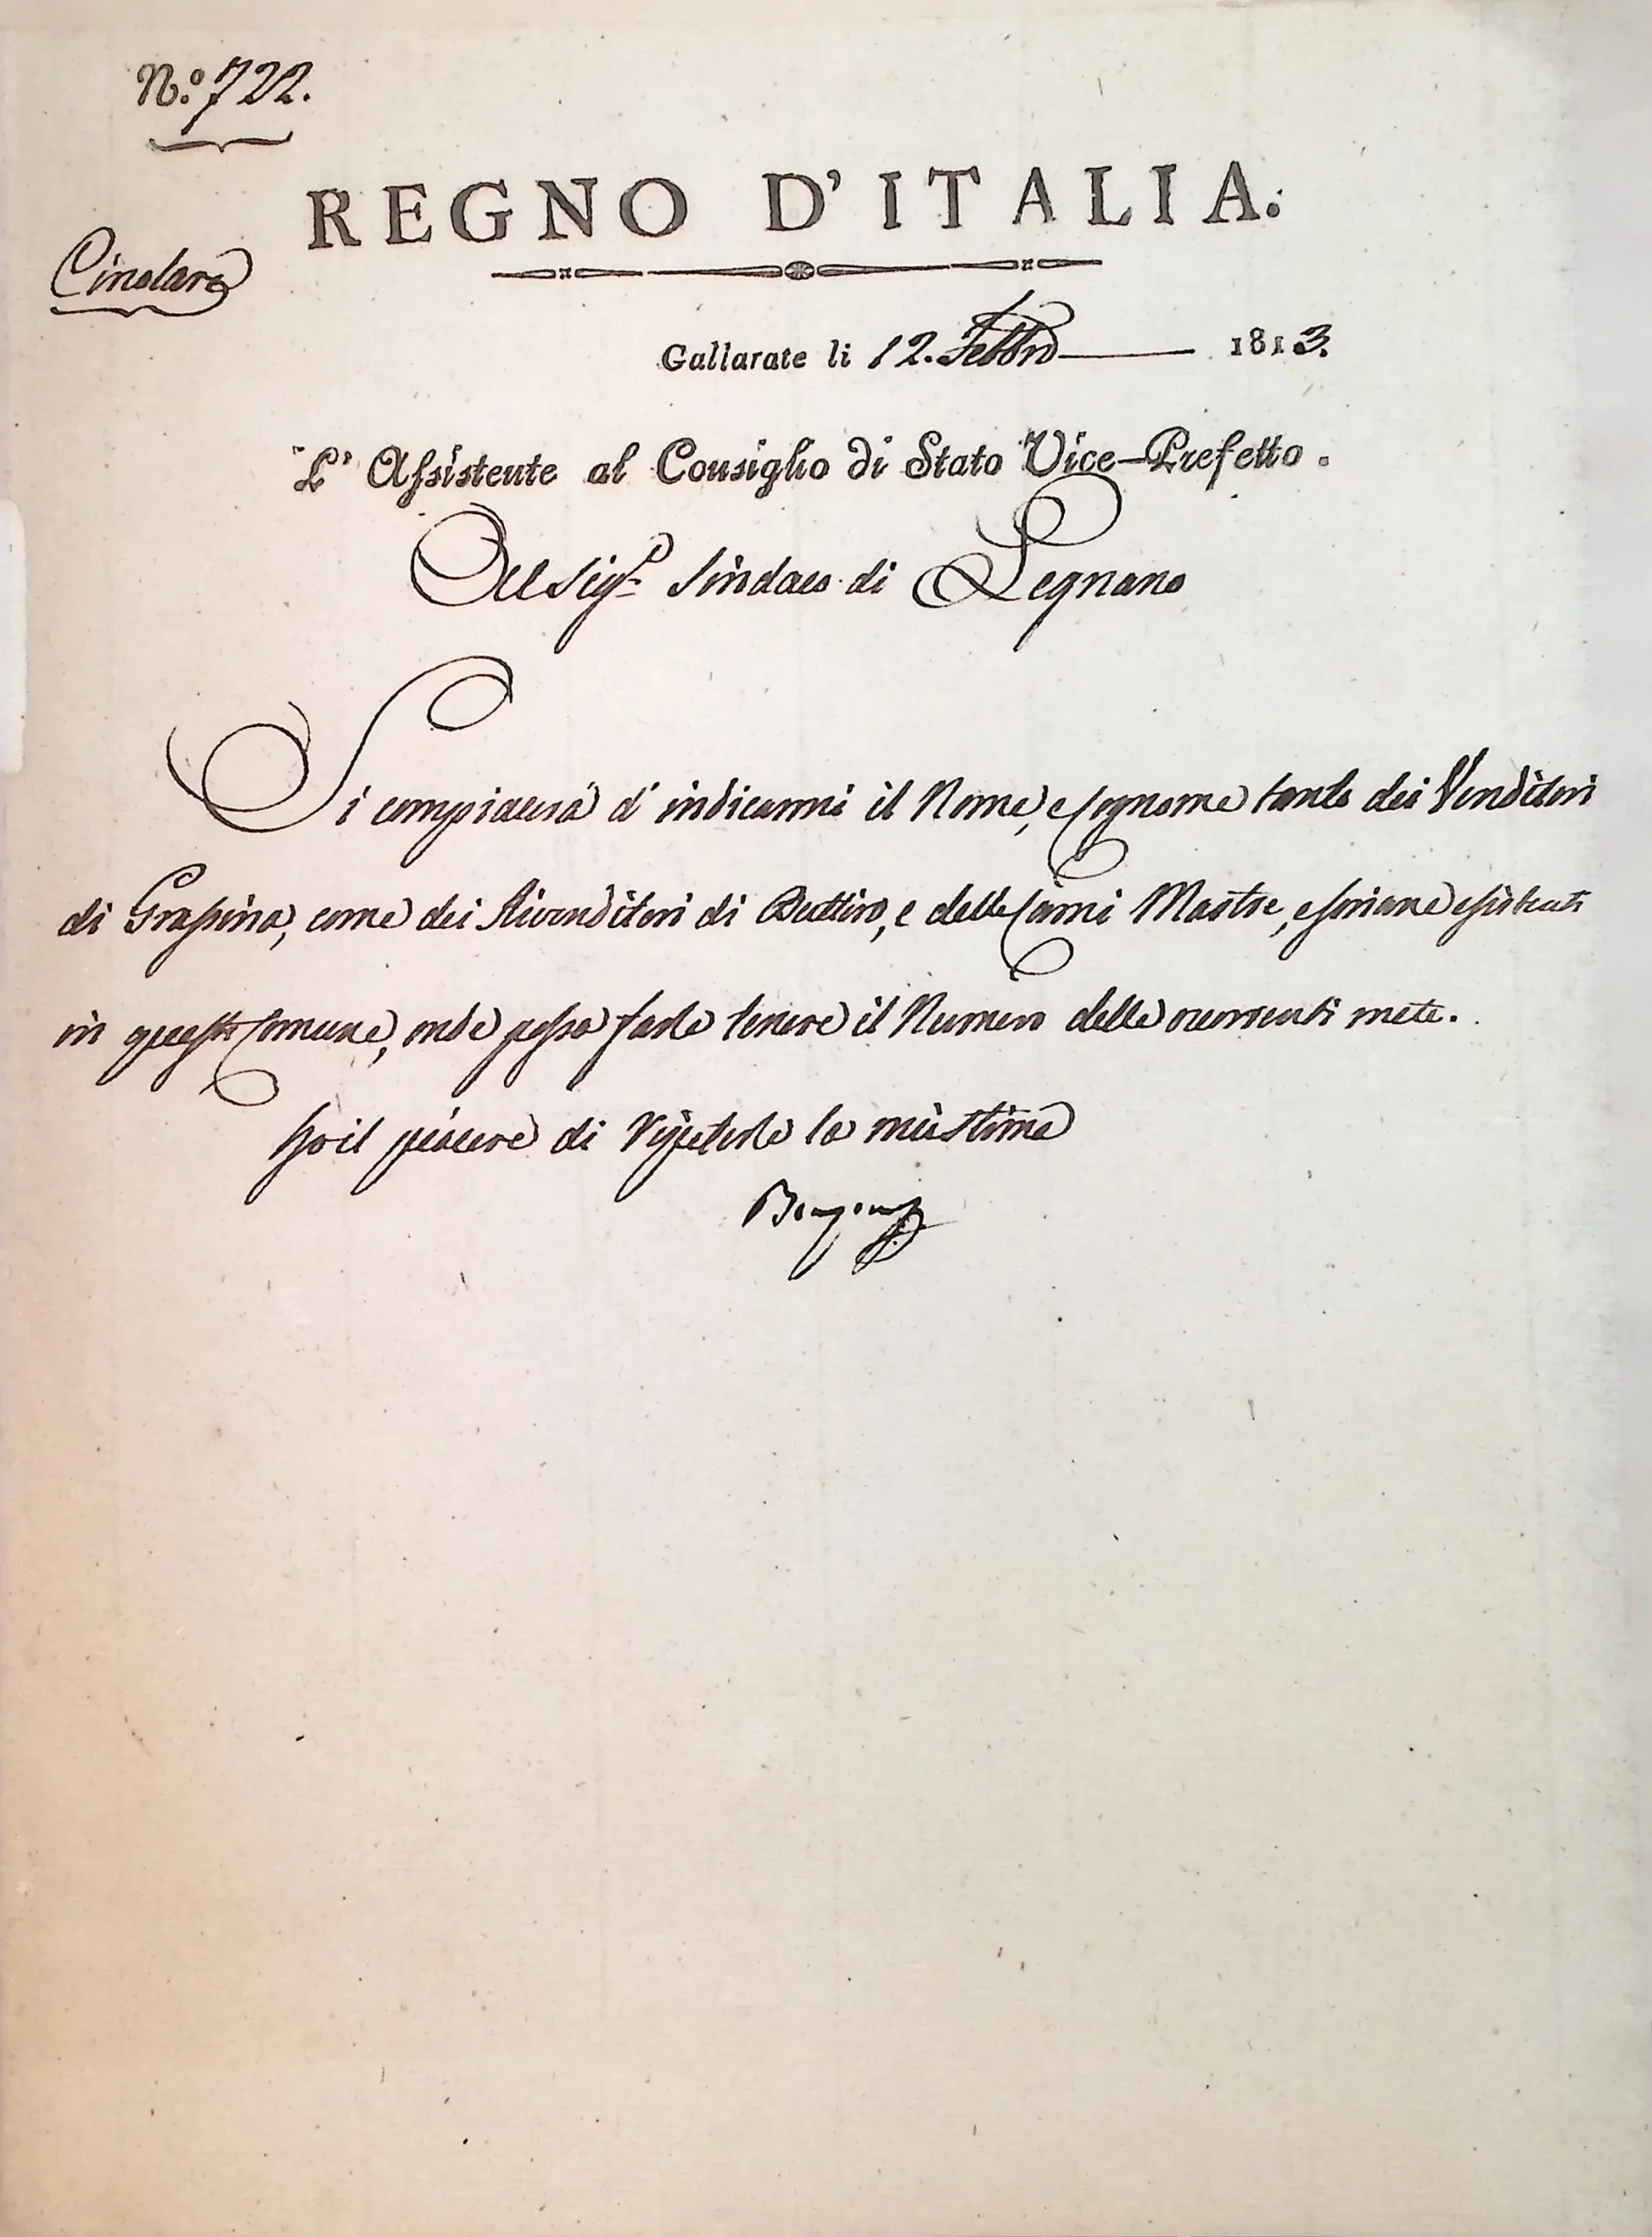 N.° 722.
REGNO D'ITALIA.
Circolare
Gallarate li 12. Febbr° 1813.
L' Assistente al Consiglio di Stato Vice-Prefetto.
Al Sig.r Sindaco di Legnano
Si compiacerà d' indicarmi il Nome, e Cognome tanto dei Venditori
di Grassina, come dei Rivenditori di Buttiro, e delle Carni Mastre, e Soriane esistenti
in questo Comune, onde possa farle tenere il Numero delle occorrenti mete.
Ho il piacere di ripeterle la mia Stima